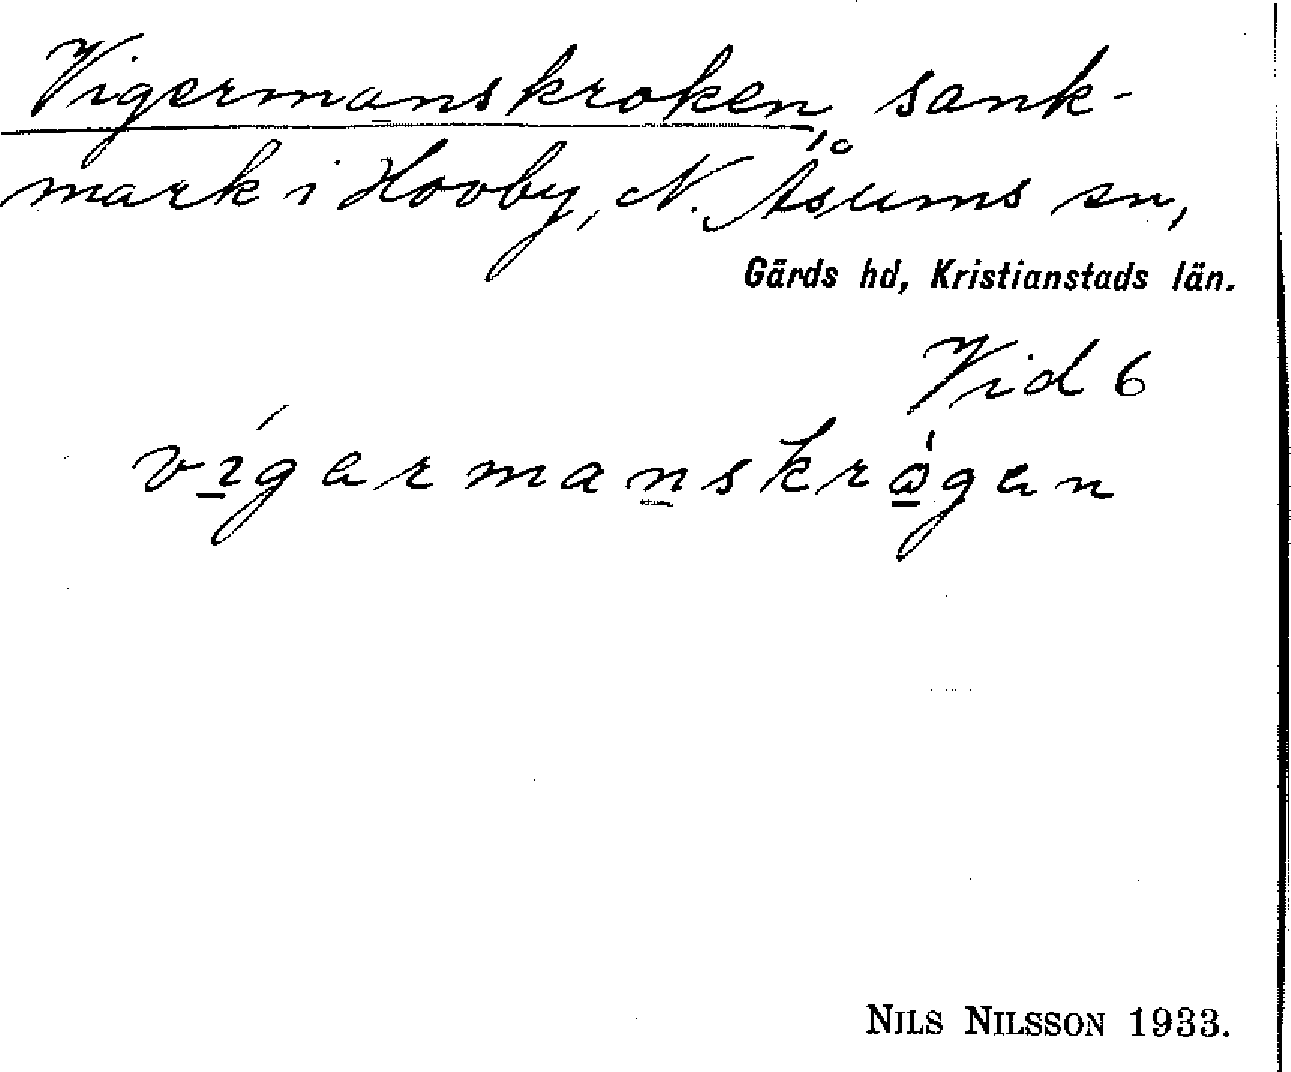 Vigermanskroken, sank-
mark i Hovby, N. Åsums sn,
Gärds hd, Kristianstads län.
Vid 6
vígermanskrǫ̀gen
NILS NILSSON 1933.